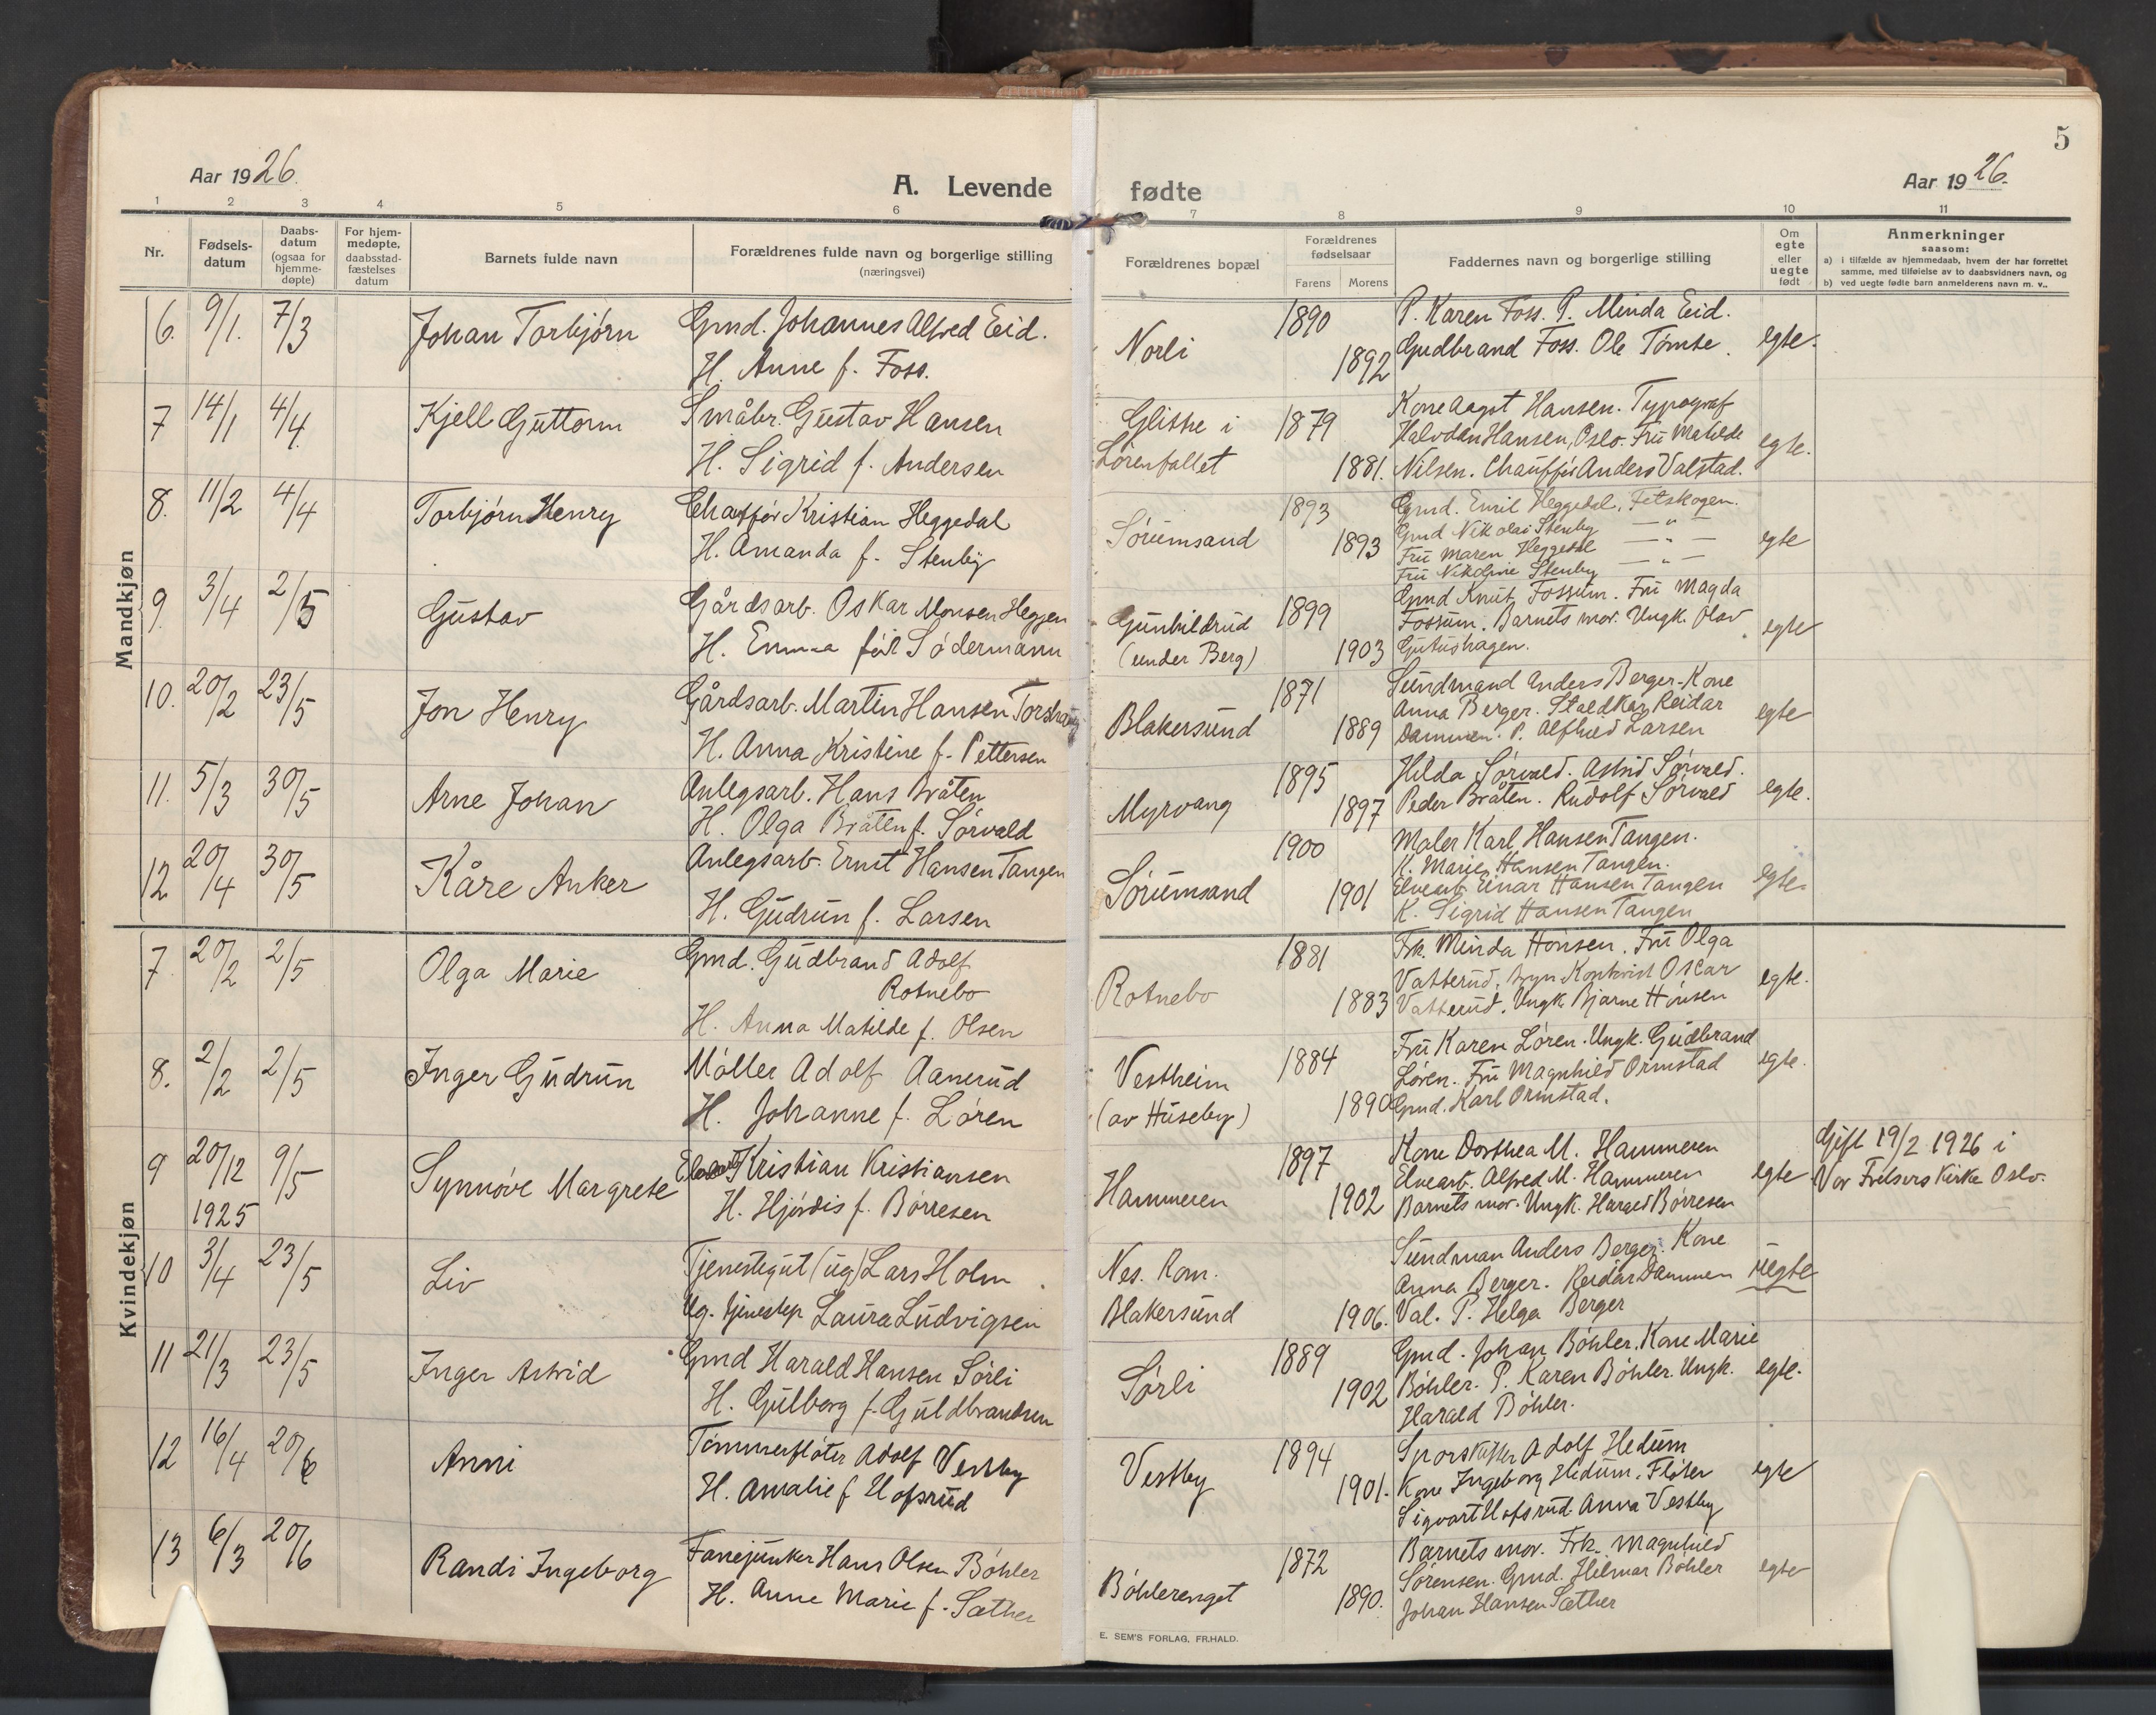 5
Aar 1926.
A. Levende
fødte
Aar 1926.
1 2 3 4 5 6 7 8 9 10 11
Nr.
Fødsels-
datum
Daabs-
datum
(ogsaa for
hjemme-
døpte)
For hjem-
medøpte,
daabsstad-
fæstelses
datum
Barnets fulde navn
Forældrenes fulde navn og borgerlige stilling
(næringsvei)
Forældrenes bopæl
Forældrenes
fødselsaar
Farens Morens
Faddernes navn og borgerlige stilling
Om
egte
eller
uegte
født
Anmerkninger
saasom:
a) i tilfælde av hjemmedaab, hvem der har forrettet
samme, med tilføielse av to daabsvidners navn, og
b) ved uegte fødte barn anmelderens navn m. v..
Mandkjøn
6. 9/1. 7/3
Johan Torbjørn
Gmd. Johannes Alfred Eid.
H. Anne f. Foss.
Norli
1890
1892
P. Karen Foss. P. Minda Eid.
Gudbrand Foss. Ole Tømte.
egte.
7 14/1 4/4
Kjell Guttorm
Småbr. Gustav Hansen
H. Sigrid f. Andersen
Glitre i
Lørenfallet
1879
1881.
Kone Aagot Hansen. Typograf
Halvdan Hansen, Oslo. Fru Matilde
Nilsen. Chauffør Anders Valstad.
egte.
8. 11/2 4/4
Torbjørn Henry
Chauffør Kristian Heggedal
H. Amanda f. Stenby
Sørumsand
1893
1893
Gmd. Emil Heggedal, Fetskogen.
Gmd Nikolai Stenby — " —
Fru Maren Heggedal — " —
Fru Nikoline Stenby — " —
egte
9. 3/4 2/5
Gustav
Gårdsarb. Oskar Monsen Heggen
H. Emma født Södermann
Gunhildrud
(under Berg)
1899
1903
Gmd Knut Fossum. Fru Magda
Fossum. Barnets mor. Ungk. Olav
Gutushagen.
egte
10. 20/2 23/5
Jon Henry
Gårdsarb. Martin Hansen
H. Anna Kristine f. Pettersen
Blakersund
1871
1889
Sundmand Anders Berger. Kone
Anna Berger. Staldkar Reidar
Dammen. P. Alfhild Larsen
egte
11. 5/3 30/5
Arne Johan
Anlegsarb. Hans Bråten
H. Olga Bråten f. Sørvald
Myrvang
1895
1897
Hilda Sørvald. Astrid Sørvald.
Peder Bråten. Rudolf Sørvald
egte.
12 20/4 30/5
Kåre Anker
Anlegsarb. Ernst Hansen Tangen
H. Gudrun f. Larsen
Sørumsand
1900
1901
Maler Karl Hansen Tangen.
K. Marie Hansen Tangen.
Elvearb. Einar Hansen Tangen
K. Sigrid Hansen Tangen
egte.
Kvindekjøn
7 20/2 2/5
Olga Marie
Gmd. Gudbrand Adolf
Rotnebo
H. Anna Matilde f. Olsen
Rotnebo
1881
1883
Frk. Minda Hønsen. Fru Olga
Vatterud. Oscar
Vatterud. Ungk. Bjarne Hønsen
egte.
8. 2/2 2/5
Inger Gudrun
Møller Adolf Aanerud
H. Johanne f. Løren
Vestheim
(av Huseby)
1884
1890
Fru Karen Løren. Ungk. Gudbrand
Løren. Fru Magnhild Ormstad
Gmd. Karl Ormstad.
egte.
9 20/12 9/5
1925
Synnøve Margrete
Elvearb. Kristian Kristiansen
H. Hjørdis f. Børresen
Hammeren
1897
1902
Kone Dorthea M. Hammeren
Elvearb. Alfred M. Hammeren
Barnets mor. Ungk. Harald Børresen
egte
Gift 19/2 1926 i
Vor Frelsers Kirke Oslo.
10 3/4 23/5
Liv
Tjenestegut (ug) Lars Holm
Ug. tjenestep. Laura Ludvigsen
Nes. Rom.
Blakersund
1906.
Sundman Anders Berger. Kone
Anna Berger. Reidar Dammen
Val. P. Helga Berger
uegte
11 21/3 23/5
Inger Astrid
Gmd Harald Hansen Sørli
H. Gulborg f. Guldbrandsen
Sørli
1889
1902
Gmd. Johan Bøhler. Kone Marie
Bøhler. P. Karen Bøhler. Ungk.
Harald Bøhler.
egte.
12 16/4 20/6
Anni
Tømmerfløter Adolf Vestby
H. Amalie f. Hofsrud
Vestby
1894
1901.
Adolf Hedum
Kone Ingeborg Hedum. Fløter
Sigvart Hofsrud. Anna Vestby
egte
13 6/3 20/6
Randi Ingeborg
Fanejunker Hans Olsen Bøhler
H. Anne Marie f. Sæther
Bøhlerenget
1872
1890.
Barnets mor. Frk. Magnhild
Sørensen. Gmd. Hilmar Bøhler
Johan Hansen Sæther
egte
E. SEM'S FORLAG, FR.HALD.